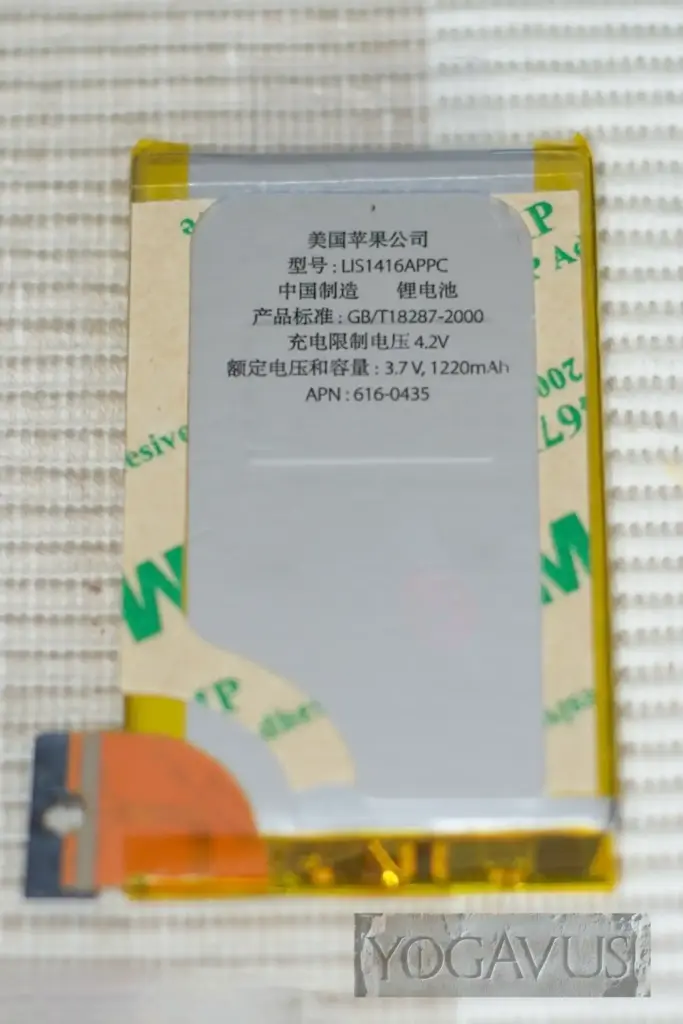 美国苹果公司
型号 : LIS1416APPC
中国制造 锂电池
产品标准 : GB/T18287-2000
充电限制电压 4.2V
额定电压和容量 : 3.7 V, 1220mAh
APN : 616-0435
esive
YOGAVUS